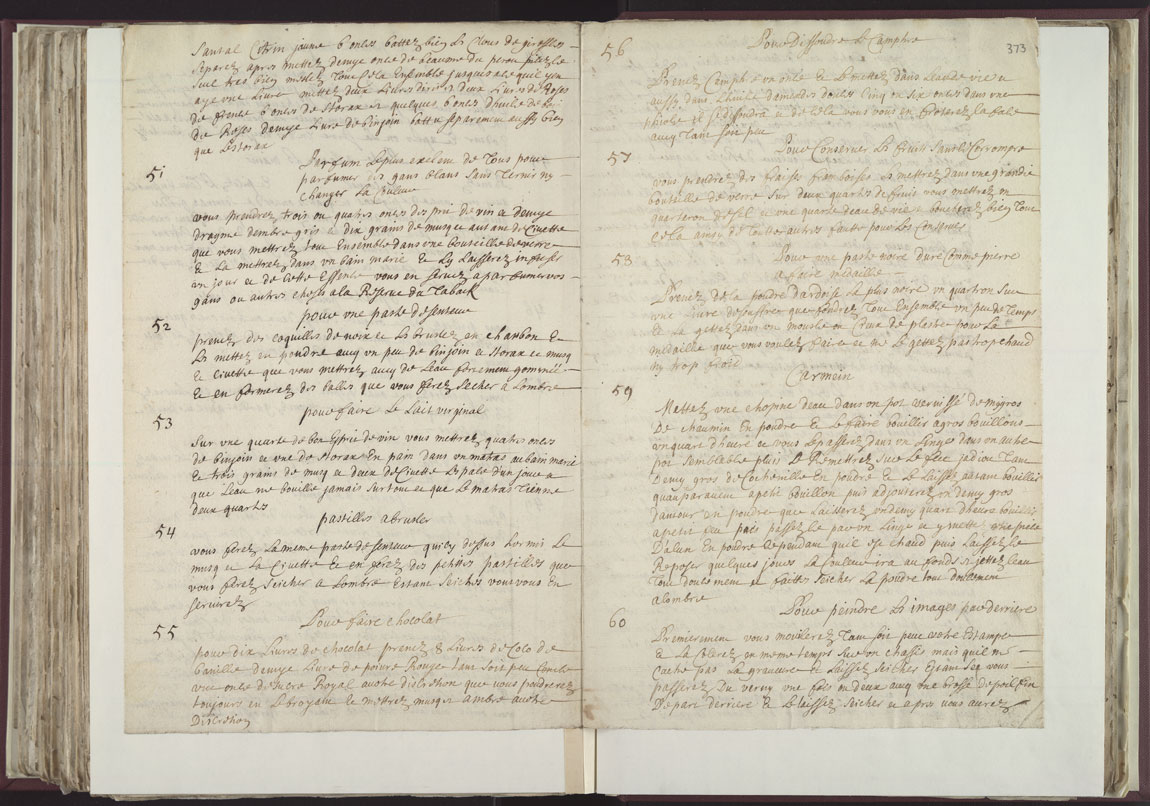 Santal Citrin jaune 6 onces battez bien les Clous de girosfles
separez apres mettez demye once de beaume du perou pilez le
tout tres bien meslez Tout cela Ensemble jusques a ce quil y en
aye une Livre mettez deux Livres
de 6 onces de Storax et quelques 6 onces d'huile de
de Roses demye Livre de binjoin battu separement aussy bien
que Le storax
51
Parfum Le plus exelent de Tous pour
parfumer des gans blans sans Ternir ny
Changer La Couleur
vous prendrez trois ou quatre onces desprit de vin et demye
dragme dembre gris et dix grains de musq et autant de Civette
que vous mettrez tout Ensemble dans une bouteille de verre
Et La mettrez dans un bain marie Et Ly Laisserez infuser
un jour et de Cette Essence vous en servez a parfumer vos
gans ou autres choses a la Reserve du Taback
52
pour une paste de senteur
prenez des coquilles de noix et Les bruslez en charbon Et
Les mettez en poudre avec un peu de binjoin et storax et musq
Et Civette que vous mettrez avec de Leau fortement gommée
Et en formerez des balles que vous ferez secher a Lombre
53
pour faire Le Lait virginal
Sur une quarte de bon Esprit de vin vous mettrez quatre onces
de binjoin et une de storax En pain dans un matras au bain marie
Et trois grains de musq et deux de Civette Lespace d'un jour et
que Leau ne bouille jamais surtout et que Le matras Tienne
deux quartes
54
pastilles a brusler
vous ferez La meme paste de senteur qui cy dessus hormis Le
musq et La Civette Et en ferez des petittes pastilles que
vous ferez seicher a Lombre Estant seiches vous vous en
servirez
55
Pour faire chocolat
pour dix Livres de chocolat prenez 8 Livres de Coco de
banille demye Livre de poivre Rouge tant soit peu
une once de sucre Royal a votre discretion que vous poudrerez
toujours en Le broyant Et mettrez musq et ambre a votre
discretion
373
56
Pour Dissoudre Le Camphre
Prenez Camphre une once Et Le mettez dans Leau de vie ou
aussy dans Lhuile damendes douces Cinq ou six onces dans une
phiole il se dissoudra et de cela vous vous en froterez La face
avec Tant soit peu
57
Pour Conserver Les fruits sans Les Corrompre
vous prendrez des fraises framboises et mettrez dans une grande
bouteille de verre Sur deux quartes de fruis vous mettrez un
quarteron de sel et une quarte deau de vie et boucherez bien Tout
Cela ainsy de Toutes autres fruits pour Les Conserver
58
Pour une paste noire dure Comme pierre
a faire medaille
Prenez de la poudre dardoise La plus noire un quartron sur
une Livre de souffre que fondrez Tout Ensemble un peu de Temps
Et La gettez dans un moulle ou Creux de plastre pour La
medaille que vous voulez faire et ne Le gettez pas trop chaud
ny trop froit
59
Carmein
Mettez une chopine deau dans un pot vernissé demy gros
De chaumin En poudre Et Le faire bouillir a gros bouillons
un quart dheure et vous Le passerez dans un Linge dans un autre
pot semblable puis Le Remettrez sur Le feu
Demy gros de Cochenille En poudre Et Le Laissez autant bouillir
quauparavent a petit bouillon puis adjouterez un demy gros
dautour en poudre que Laisserez un demy quart dheure bouillir
a petit feu puis passez Le par un Linge et y mettez
D'alun En poudre Cependant quil est chaud puis Laissez Le
Reposer quelques jours La Couleur ira au fonds et jettez Leau
tout doucement et faittes seicher La poudre tout doucement
a Lombre
60
Pour peindre Les images par derriere
Premierement vous mouillerez Tant soit peu votre Estampe
et La Colerez en meme temps sur un chassis mais quil ne
Cache pas La graveure et Laissez seicher Estant sec vous
passerez Du vernis une fois ou deux avec une brosse de poil fin
De par derriere Et Le Laissez seicher et apres vous aurez